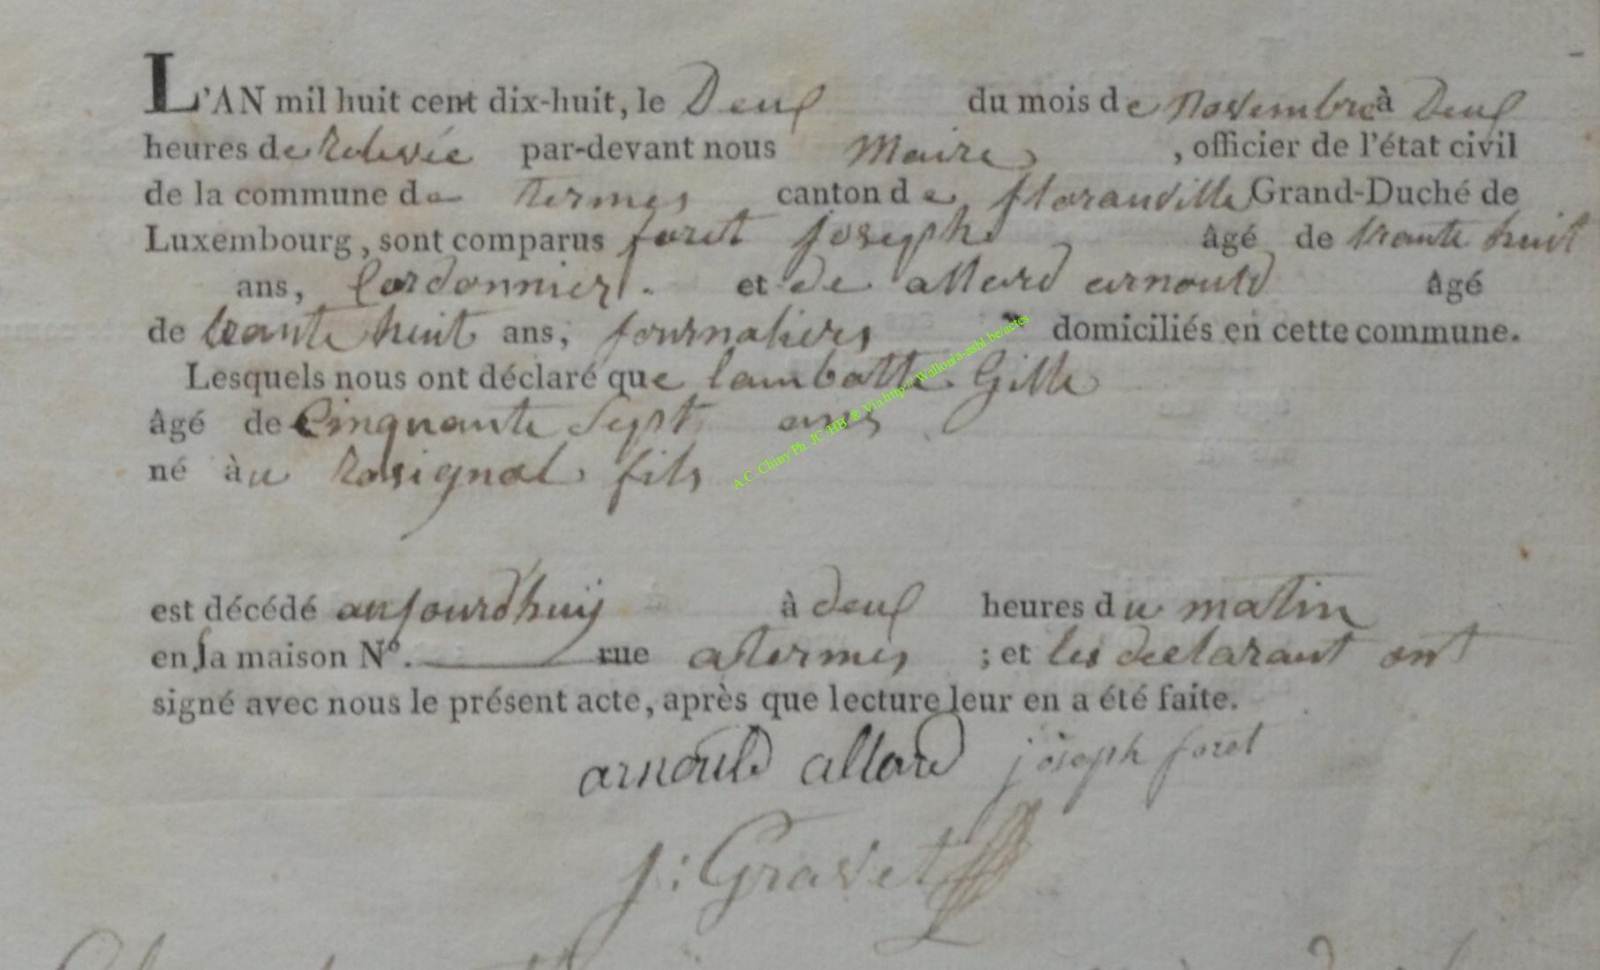 L'AN mil huit cent dix-huit, le Deux du mois de Novembre à Deux
heures de Relevée par-devant nous Maire , officier de l'état civil
de la commune de termes canton de floranville Grand-Duché de
Luxembourg, sont comparus foret joseph âgé de trante huit
ans, Cordonnier. et de allard arnould âgé
de trante huit ans, journaliers domiciliés en cette commune.
Lesquels nous ont déclaré que lambotte Gille
âgé de Cinquante Sept ans
né àu Rosignol fils
est décédé aujourd'huij à deux heures du matin
en la maison N°. rue a termes ; et les declarant ont
signé avec nous le présent acte, après que lecture leur en a été faite.
arnould allard joseph foret
j: Gravet